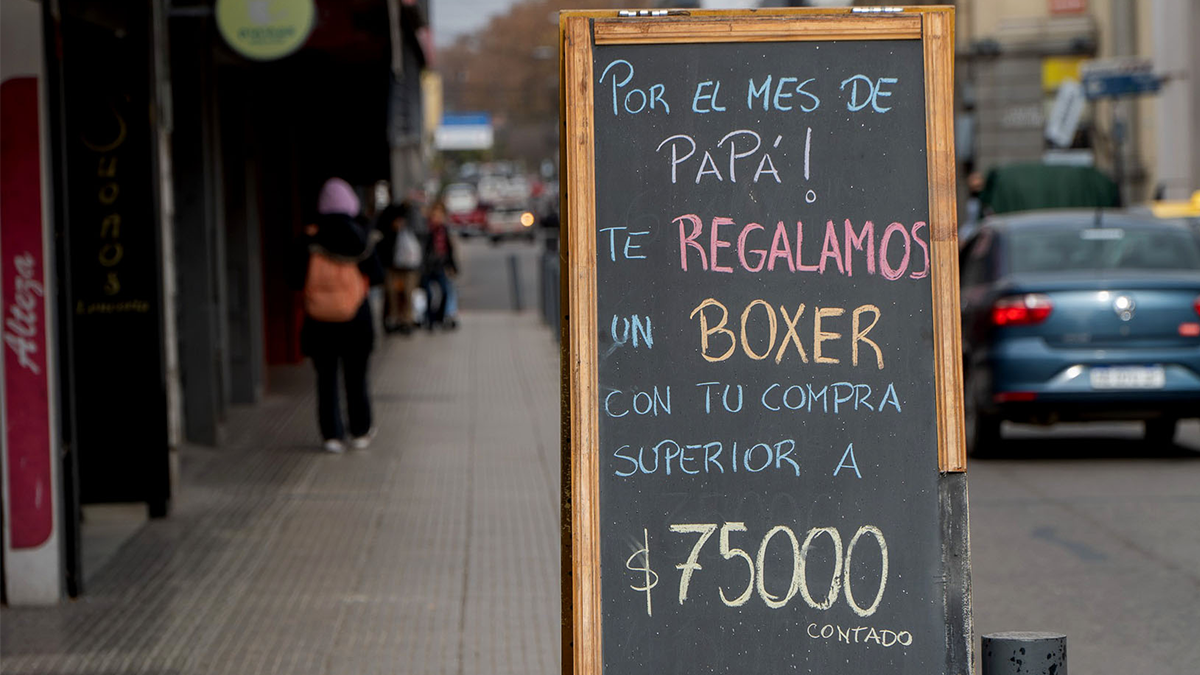 POR EL MES DE
PAPÁ!
TE REGALAMOS
UN BOXER
CON TU COMPRA
SUPERIOR A
$75000
CONTADO
Alteza
Sueños
Lencería